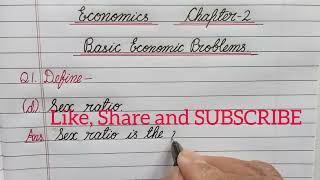 Economics Chapter-2
Basic Economic Problems
Q1. Define-
(d) Sex ratio.
Like, Share and SUBSCRIBE
Ans Sex ratio is the